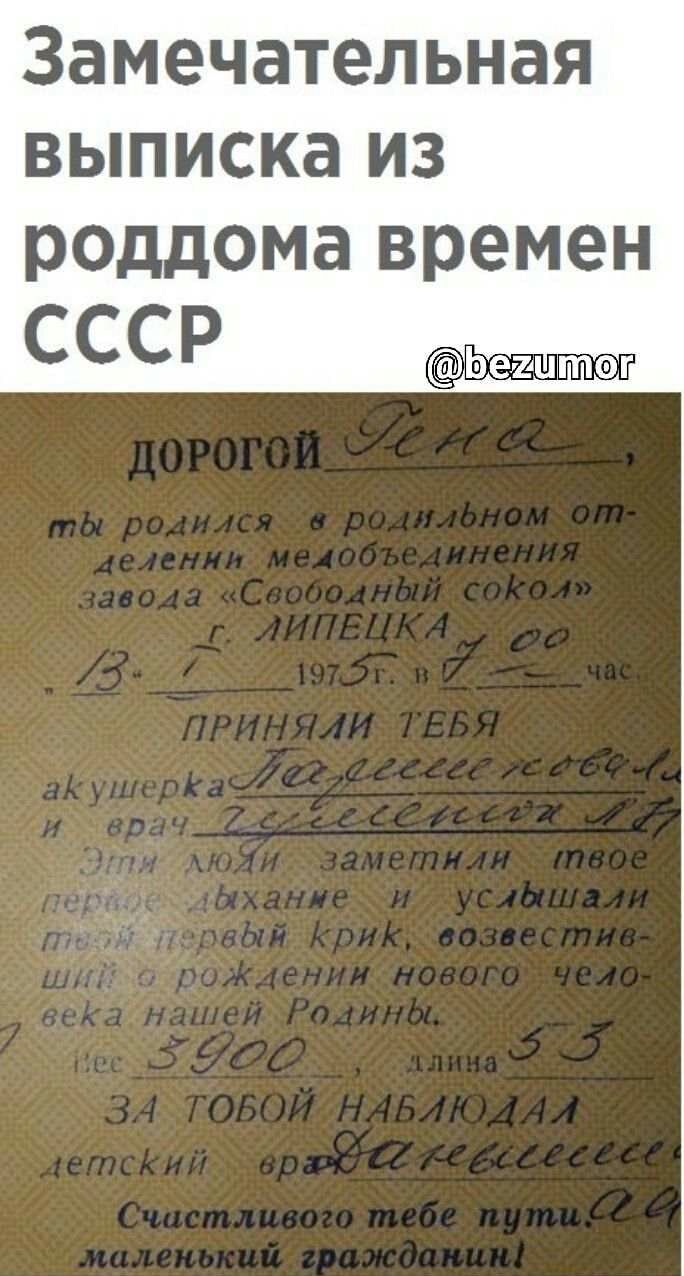 Замечательная
выписка из
роддома времен
СССР
@bezumor
ДОРОГОЙ Гена,
ты родился в родильном от-
делении медобъединения
завода «Свободный сокол»
г. ЛИПЕЦКА
„13“ I 1975г. в 7 00 час.
ПРИНЯЛИ ТЕБЯ
акушерка
и врач
Эти люди заметили твое
первое дыхание и услышали
твой первый крик, возвестив-
ший о рождении нового чело-
века нашей Родины.
Вес 3900, длина 53
ЗА ТОБОЙ НАБЛЮДАЛ
детский врач
Счастливого тебе пути,
маленький гражданин!